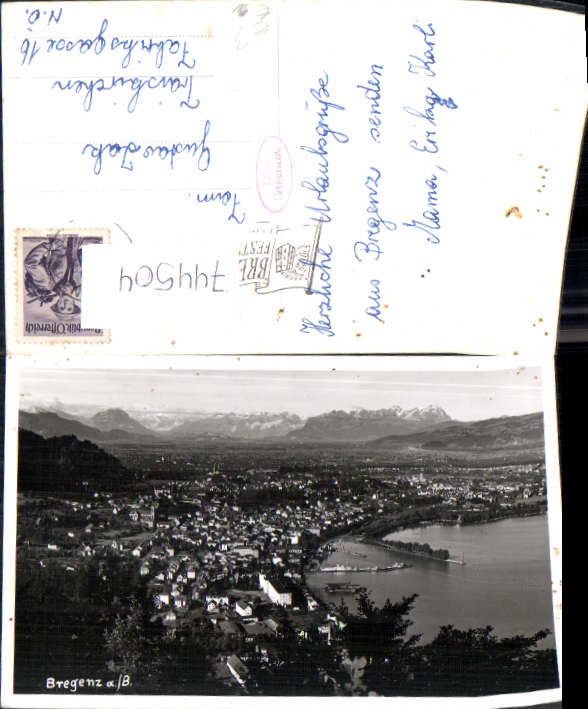 Herzliche Urlaubsgrüße
aus Bregenz senden
Mama, Erika, Karli
Fam.
Gustav Jak
Traiskirchen
Fabriksgasse 16
N.Ö.
744504
BRE
FEST
Republik Österreich
Bregenz a./B.